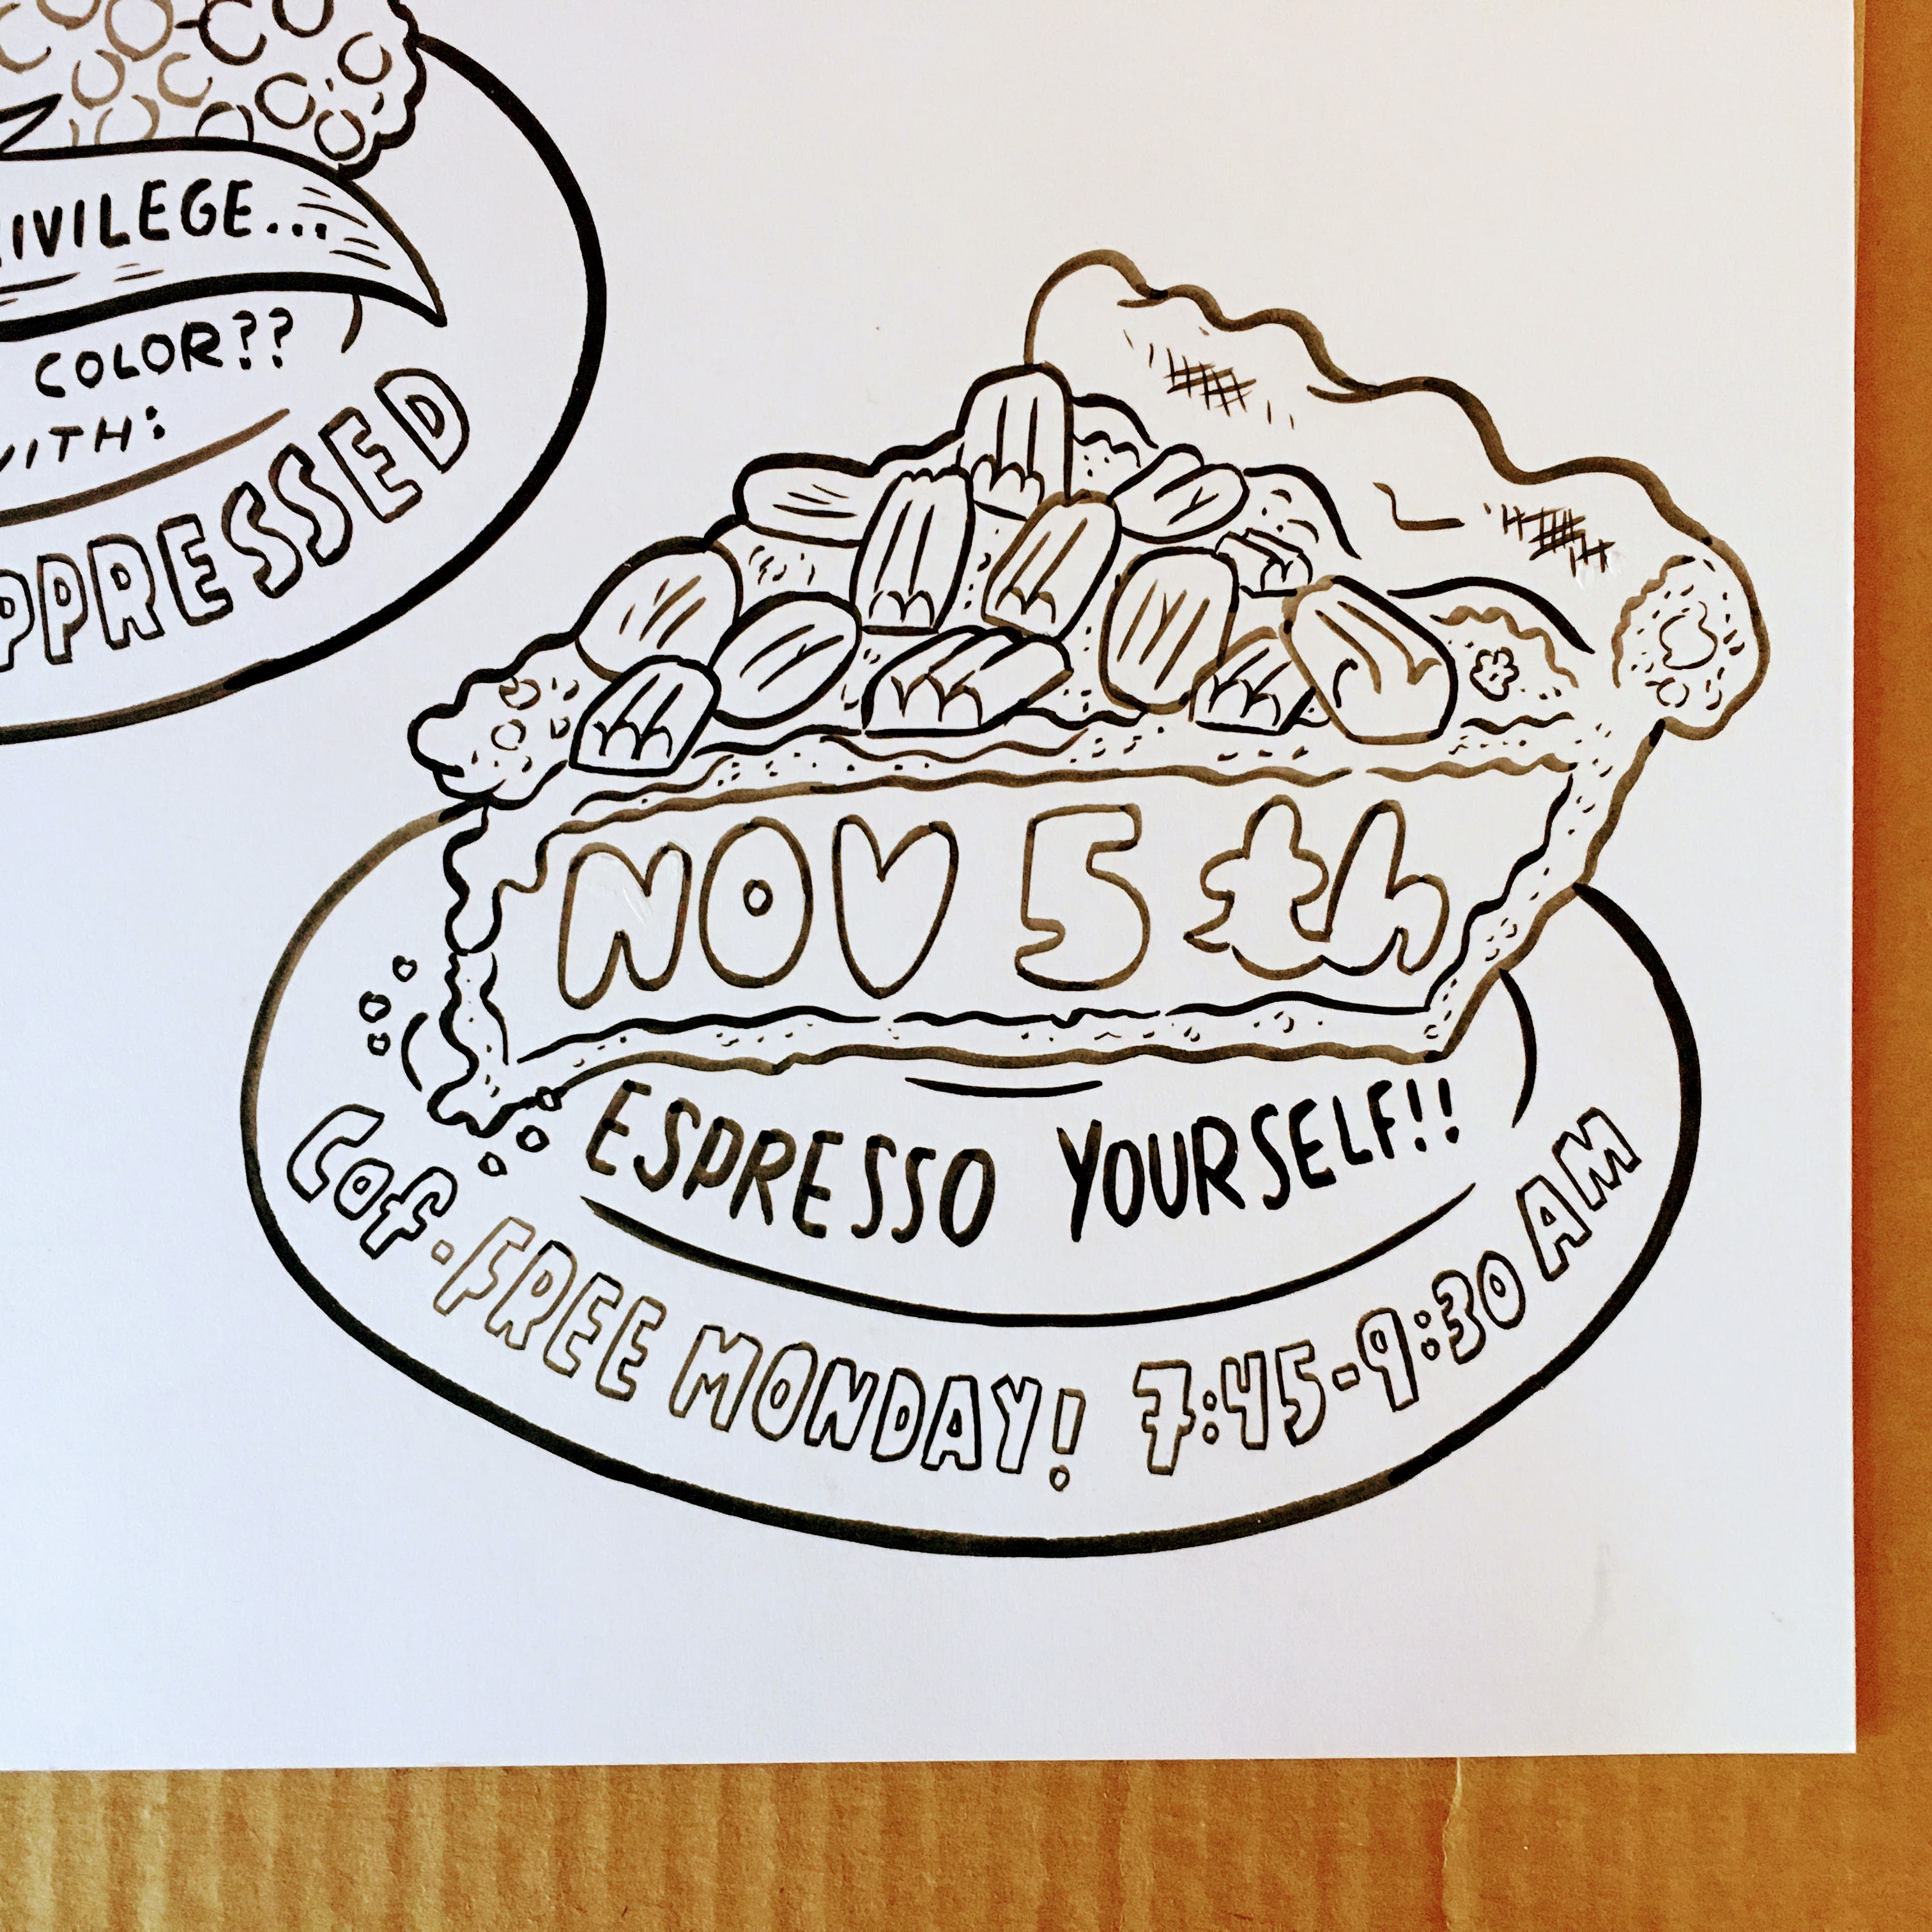 COLOR??
NOV 5th
ESPRESSO YOURSELF!!
Cof·FREE MONDAY! 7:45-9:30 AM